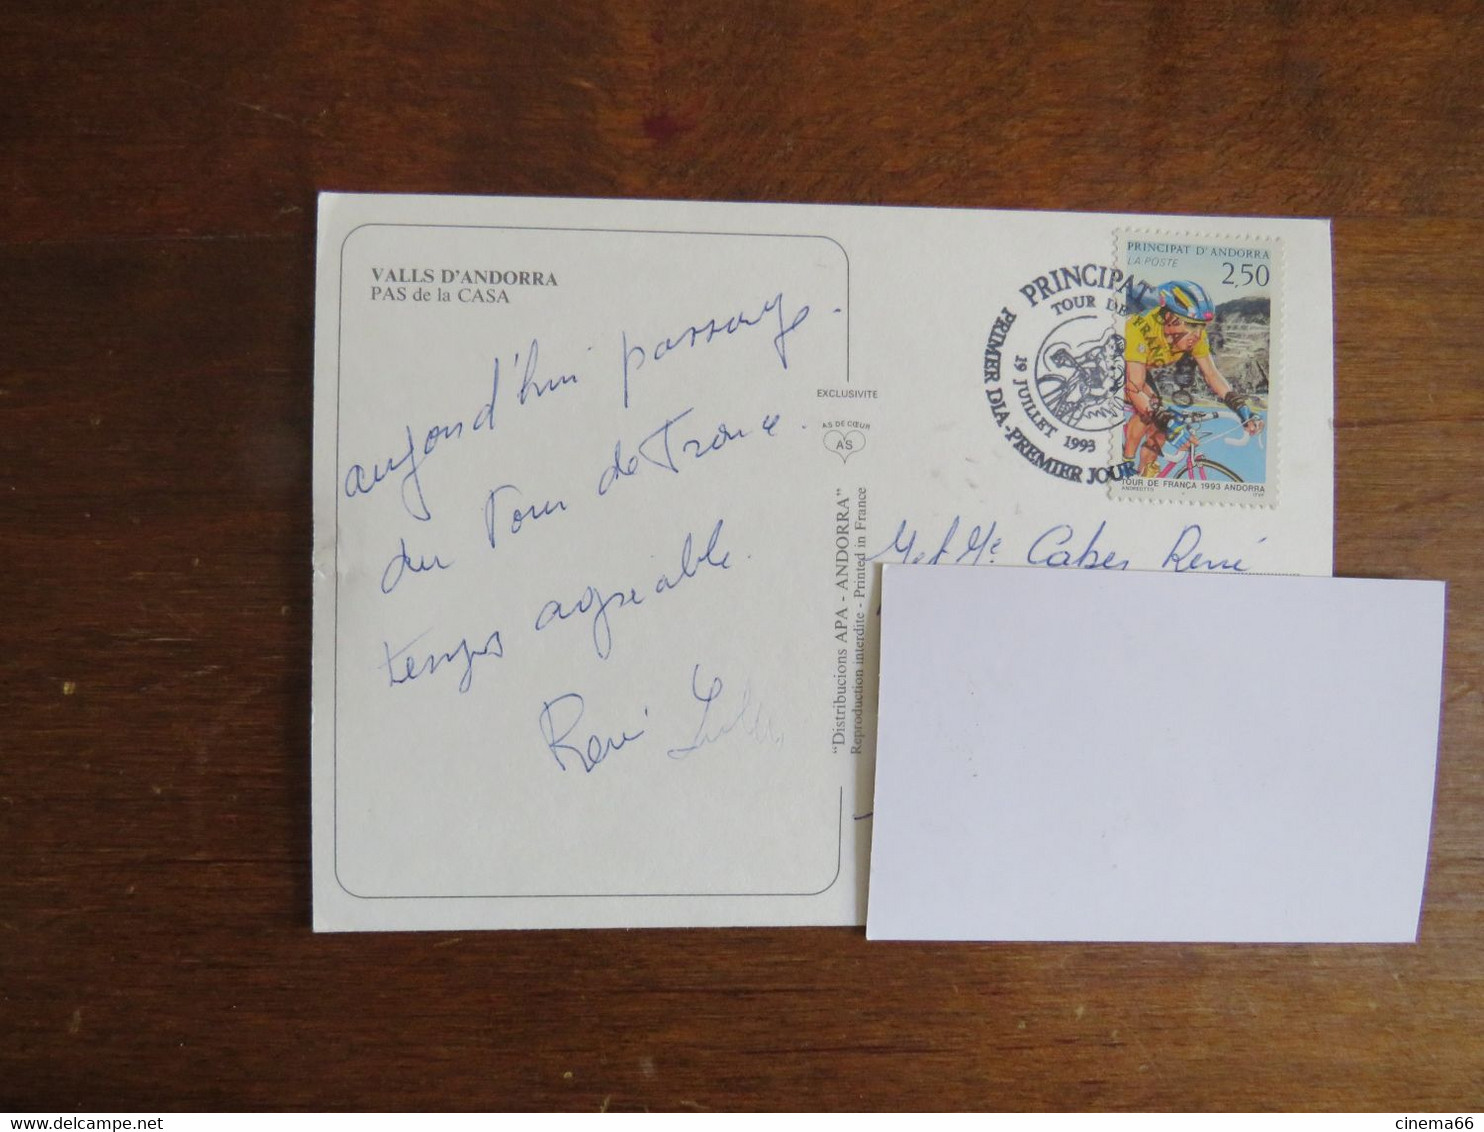 VALLS D'ANDORRA
PAS de la CASA
aujourd'hui passage.
du Tour de France.
temps agréable.
René
EXCLUSIVITE
AS DE CŒUR
AS
"Distribucions APA - ANDORRA"
Reproduction interdite - Printed in France
PRINCIPAT D'ANDORRA
TOUR DE FRANCE
19 JUILLET 1993
PRIMER DIA - PREMIER JOUR
PRINCIPAT D'ANDORRA
LA POSTE
2,50
TOUR DE FRANÇA 1993 ANDORRA
ANDREOTTO ITVF
M et Me Caber René
cinema66